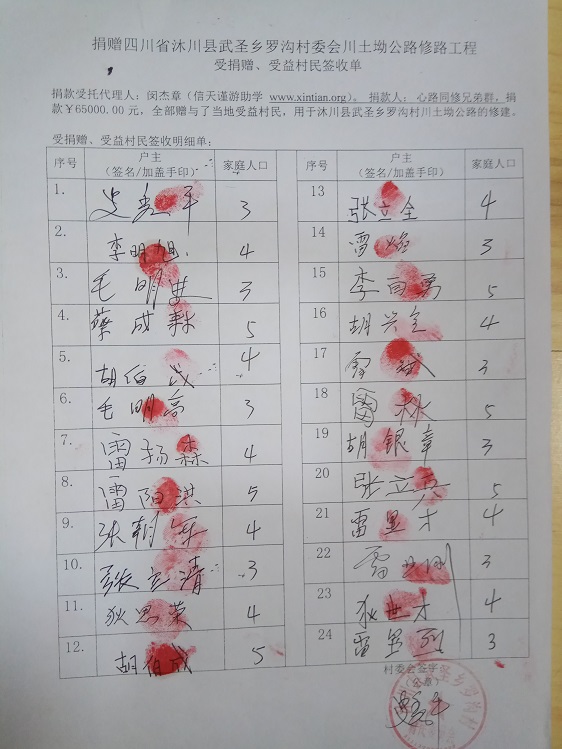 捐赠四川省沐川县武圣乡罗沟村委会川土坳公路修路工程
受捐赠、受益村民签收单
捐款受托代理人：闵杰章（信天谨游助学 www.xintian.org）。 捐款人： 心路同修兄弟群，捐
款￥65000.00 元，全部赠与了当地受益村民，用于沐川县武圣乡罗沟村川土坳公路的修建。
受捐赠、受益村民签收明细单：
序号 户主（签名/加盖手印） 家庭人口 序号 户主（签名/加盖手印） 家庭人口
1. 3
2. 李明旭 4
3. 毛明 3
4. 蔡成 5
5. 胡伯 4
6. 毛明高 3
7. 雷扬森 4
8. 雷阳洪 5
9. 张朝 4
10. 张立清 3
11. 狄思荣 4
12. 胡伯成 5
13 张立全 4
14 雷 3
15 李 5
16 胡兴全 4
17 雷斌 3
18 雷林 5
19 胡银章 3
20 张立 5
21 雷 才 4
22 雷 3
23 狄世才 4
24 雷 烈 3
村委会签字
（公章）